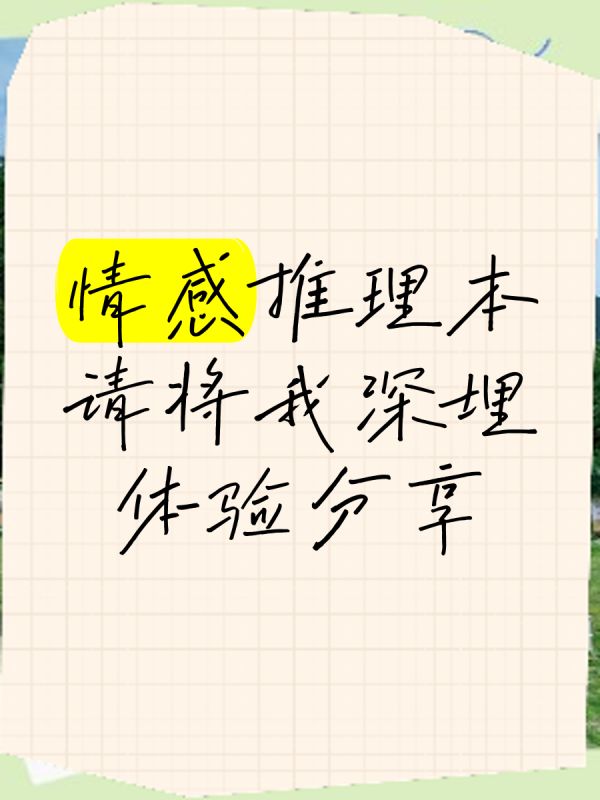 情感推理本
请将我深埋
体验分享